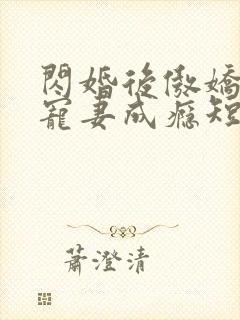 閃婚後傲嬌
寵妻成癮短
蕭澄清